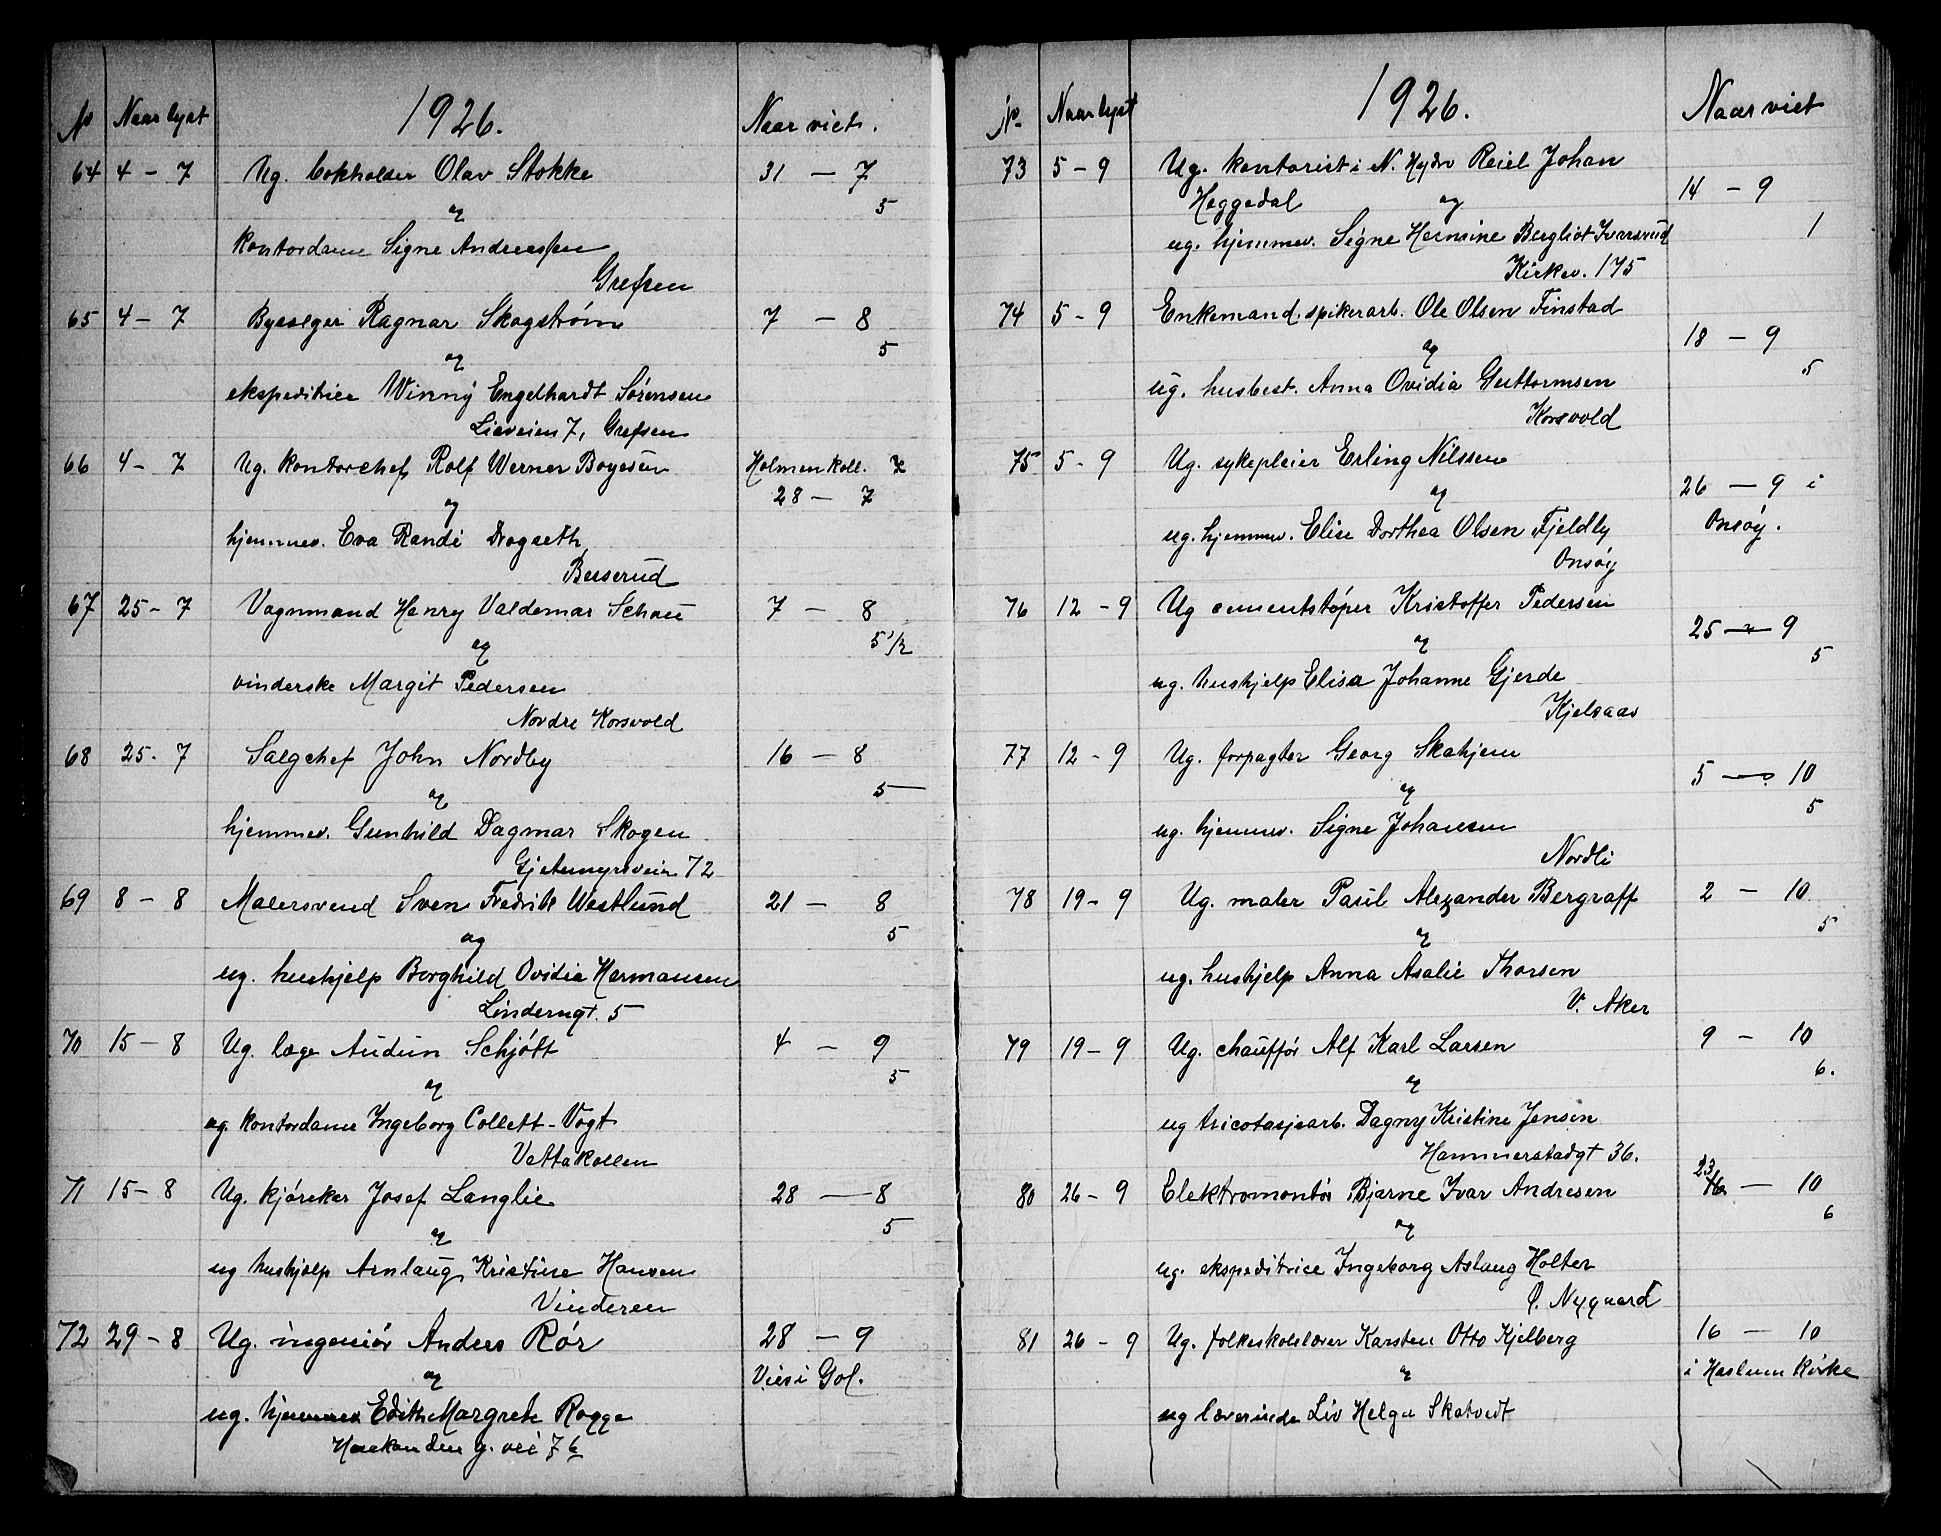 No Naar lyst 1926. Naar viet.
64 4 - 7 Ug. bokholder Olav Stokke 31 - 7
og 5
kontordame Signe Andreassen
Grefsen
65 4 - 7 Bysælger Ragnar Skogstrøm 7 - 8
og 5
ekspeditrice Winny Engelhardt Sørensen
Lieveien 7, Grefsen
66 4 - 7 Ug. kontorchef Rolf Werner Boyesen Holmenkoll.
og 28 - 7
hjemmev. Eva Randi Drogseth,
Besserud
67 25 - 7 Vognmand Henry Valdemar Schou 7 - 8
og 5 1/2
vinderske Margit Pedersen
Nordre Korsvold
68 25 - 7 Salgchef John Nordby 16 - 8
og 5
hjemmev. Gunhild Dagmar Skogen
Gjetemyrsveien 72
69 8 - 8 Malersvend Sven Fredrik Westlund 21 - 8
og 5
ug. hushjelp Borghild Ovidia Hermansen
Linderngt. 5
70 15 - 8 Ug. læge Audun Schjøtt 4 - 9
og 5
ug. kontordame Ingeborg Collett-Vogt
Vettakollen
71 15 - 8 Ug. kjørekar Josef Langlie 28 - 8
og 5
ug hushjelp Arnlaug Kristine Hansen
Vinderen
72 29 - 8 Ug. ingeniør Anders Rør 28 - 9
og Vies i Gol.
ug. hjemmev. Edith Margrete Rogge
g. vei 76
No. Naar lyst 1926. Naar viet
73 5 - 9 Ug. kontorist i N. Hydro Reiel Johan
Heggedal og 14 - 9
ug. hjemmev. Signe Hermine Bergliot Ivarsrud 1
Kirkev. 175
74 5 - 9 Enkemand. spikerarb. Ole Olsen Finstad
og 18 - 9
ug. husbest. Anna Ovidia Guttormsen 5
Korsvold
75 5 - 9 Ug. sykepleier Erling Nilssen
og 26 - 9 i
ug. hjemmev. Elise Dorthea Olsen Fjeldby Onsøy.
Onsøy
76 12 - 9 Ug cementstøper Kristoffer Pedersen
og 25 - 9
ug. hushjelp Elisa Johanne Gjerde 5
Kjelsaas
77 12 - 9 Ug. forpagter Georg Skahjem
og 5 - 10
ug. hjemmev. Signe Johansen 5
Nordli
78 19 - 9 Ug. maler Paul Alexander Bergraff 2 - 10
og 5
ug. hushjelp Anna Asalie Thorsen
V. Aker
79 19 - 9 Ug. chauffør Alf Karl Larsen 9 - 10
og 6.
ug tricotasjearb. Dagny Kristine Jensen
Hammerstadgt 36.
80 26 - 9 Elektromontør Bjarne Ivar Andresen 23 - 10
og 6
ug. ekspeditrice Ingeborg Aslaug Holter
Ø. Nygaard
81 26 - 9 Ug. folkeskolelærer Karsten Otto Kjelberg 16 - 10
og i Haslum kirke
ug lærerinde Liv Helga Skatvedt